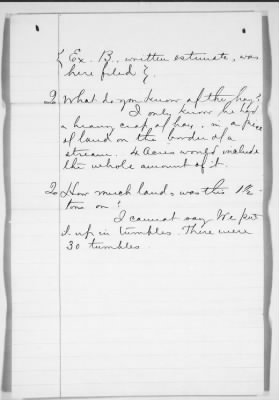 { Ex. B., written estimate, was
here filed }.
Q What do you know of the hay?
I only know he had
a heavy crop of hay, in a piece
of land on the border of a
stream. 4 Acres would include
the whole amount of it.
Q How much land, was this 1½
tons on?
I cannot say. We put
it up in tumbles. There were
30 tumbles.